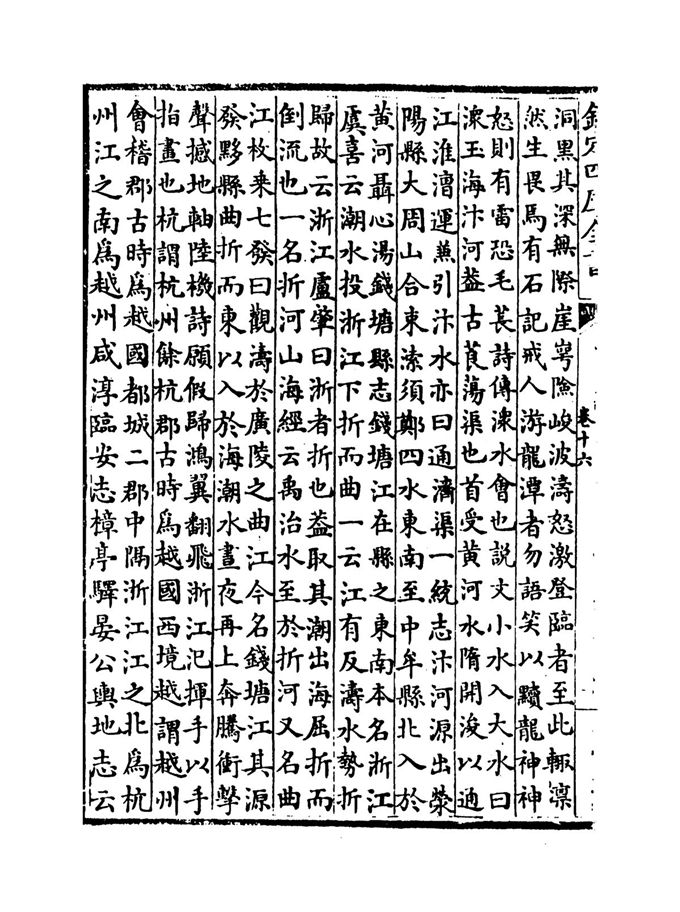 欽定四庫全書
卷十六
洞黑其深無際崖岸險峻波濤怒激登臨者至此輒凜
然生畏焉有石記戒人游龍潭者勿語笑以黷龍神神
怒則有雷恐毛萇詩傳潨水會也説文小水入大水曰
潨玉海汴河葢古莨蕩渠也首受黄河水隋開浚以通
江淮漕運兼引汴水亦曰通濟渠一統志汴河源出滎
陽縣大周山合東索須鄭四水東南至中牟縣北入於
黄河聶心湯錢塘縣志錢塘江在縣之東南本名浙江
虞喜云潮水投浙江下折而曲一云江有反濤水勢折
歸故云浙江盧肇曰浙者折也葢取其潮出海屈折而
倒流也一名折河山海經云禹治水至於折河又名曲
江枚乗七發曰觀濤於廣陵之曲江今名錢塘江其源
發黟縣曲折而東以入於海潮水晝夜再上奔騰衝擊
聲撼地軸陸機詩願假歸鴻翼翻飛浙江汜揮手以手
指畫也杭謂杭州餘杭郡古時為越國西境越謂越州
會稽郡古時為越國都城二郡中隅浙江江之北為杭
州江之南為越州咸淳臨安志樟亭驛晏公輿地志云